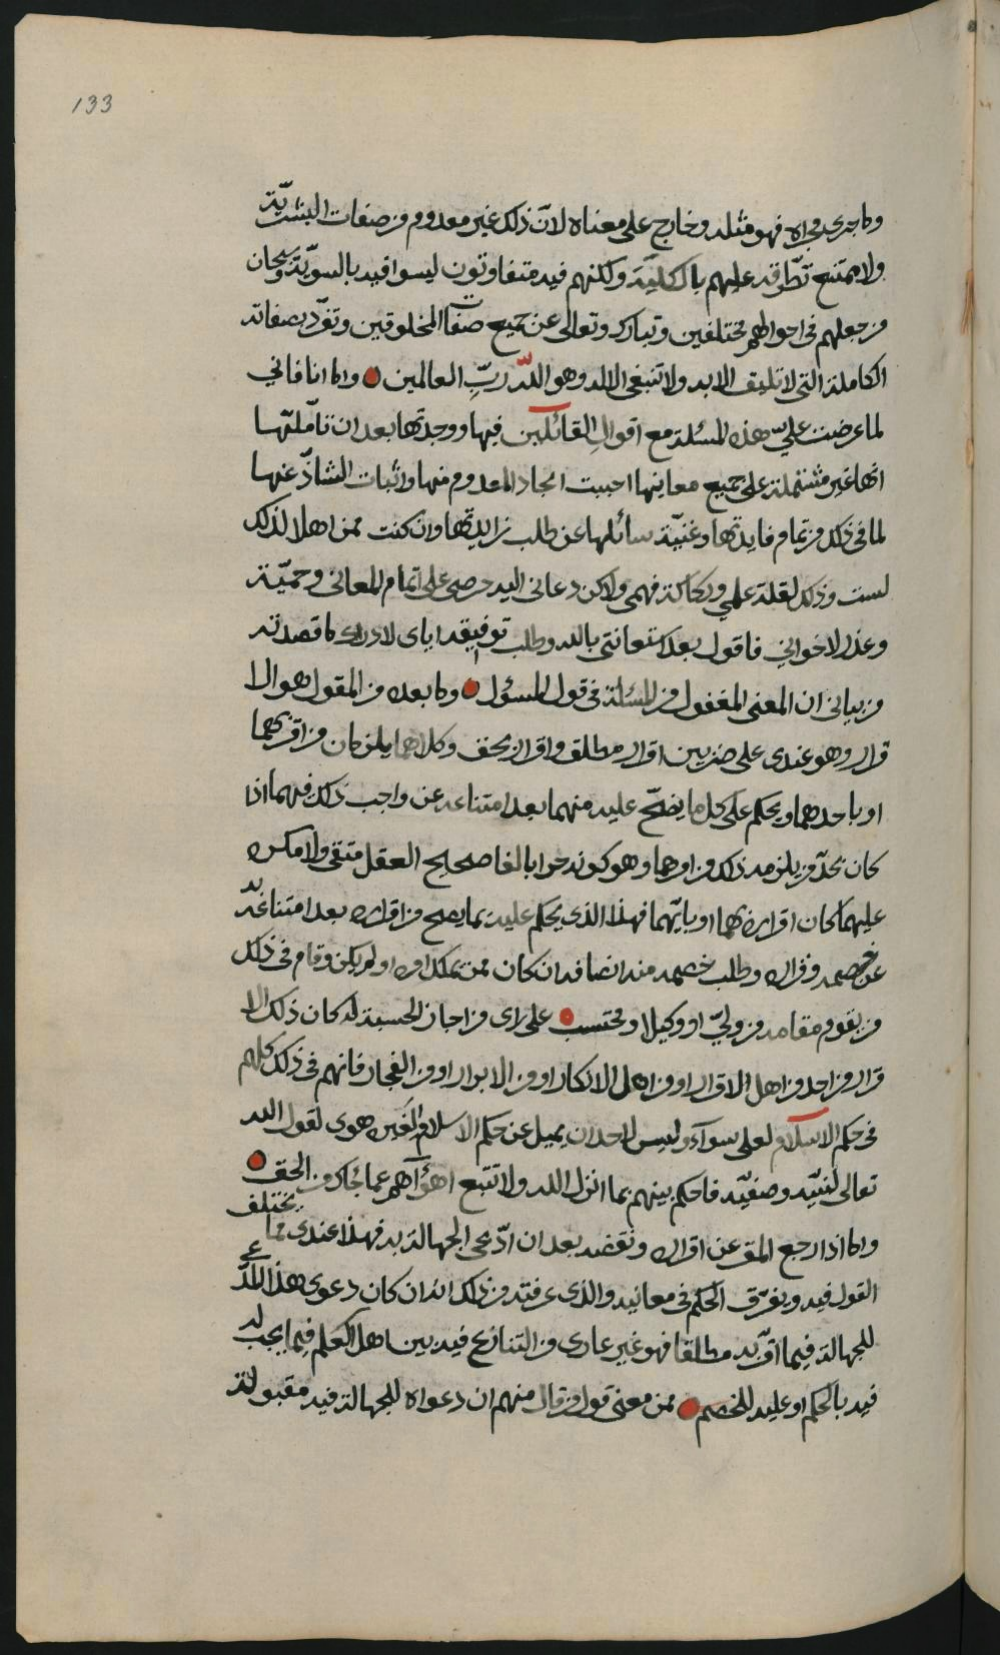 133
وما جرى مجراه فهو مثله وخارج على معناه لانّ ذلك غير معدوم من صفات البشريّة
ولا يمتنع تطّرقه عليهم بالكليّة ولكنهم فيه متفاوتون ليسوا فيه بالسويّة وسبحان
من جعلهم فى احوالهم مختلفين وتبارك وتعالى عن جميع صفات المخلوقين وتفرّد بصفاته
الكاملة التى لا تليق الا به ولا تنبغى الا له وهو اللّه ربّ العالمين واما انا فاني
لما عرضت عليّ هذه المسئلة مع اقوال القائلين فيها ووجدتها بعد ان تاملّتها
انها غير مشتملة على جميع معانيها احببت ايجاد المعدوم منها واثبات الشاذّ عنها
لما فى ذلك من تمام فايدتها وغنيّة سائلها عن طلب زايدتها وان كنت ممن اهلا لذلك
لست وذلك لقلة علمي وركاكة فهمى ولاكن دعانى اليه حرصى على اتمام المعانى وحميّة
وعذر لاخواني فاقول بعد استعانتى بالله وطلب توفيقه اياى لادراك ما قصدته
من بيانى ان المعنى المغفول من المسئلة فى قول المسئول وما بعده من المقول هو الا
قرار وهو عندى على ضربين اقرار مطلق واقرار بحق وكلاهما يلزمان من اقر بهما
او باحدهما ويحكم على كل ما يصحّ عليه منهما بعد امتناعه عن واجب ذلك فيهما اذا
كان بحدّ من يلزمه ذلك من اوهما وهو كونه حرا بالغا صحيح العقل متقى ولا مكره
عليهما كان اقراره بهما او بايّهما فهذا الذى يحكم عليه بما يصح من اقراره بعد امتناعه به
عن خصمه وفراره وطلب خصمه منه انصافه ان كان ممن يملك امره او لم يكن وقام فى ذلك
من يقوم مقامه من وليّ او وكيل او محتسب على راى من اجاز الحسبة له كان ذلك الا
قرار من احد من اهل الاقرار او من اهل الانكار او من الابرار او من الفجار فانهم فى ذلك كلهم
فى حكم الاسلام لعلى سوآء وليس لاحد ان يميل عن حكم الاسلام الغيره هوى لقول الله
تعالى لنبيّه وصفيّه فاحكم بينهم بما انزل الله ولا تتبع اهوآءهم عما جاءك من الحق
واما اذا رجع المقر عن اقراره ونقضه بعد ان ادّعى الجهالة به فهذا عندى مما يختلف
القول فيه ويفرّق الحكم فى معانيه والذى عرفته من ذلك انه ان كان دعوى هذا المدّعي
للجهالة فيما اقرّ به مطلقا فهو غير عارى من التنازع فيه بين اهل العلم فيما يجب له
فيه بالحكم او عليه للخصم ممن معنى قول من قال منهم ان دعواه للجهالة فيه مقبولة